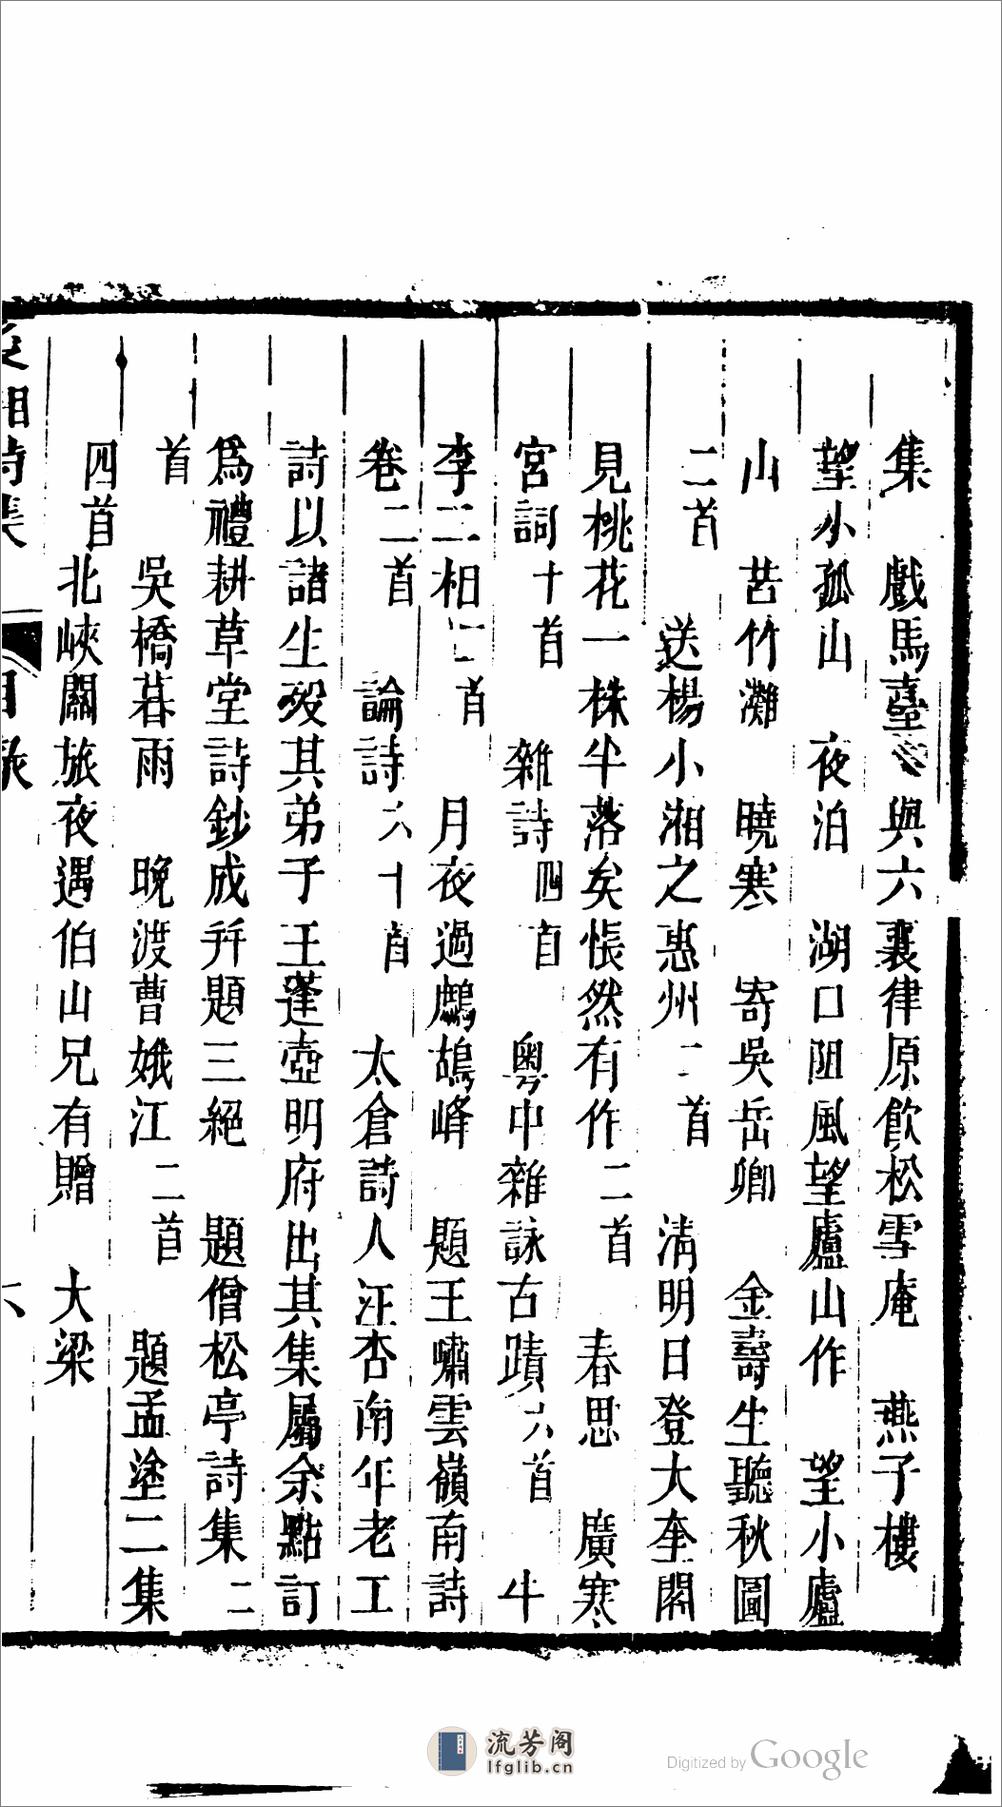 集　戲馬臺　與六襄律原飲松雪庵　燕子樓
望小孤山　夜泊　湖口阻風望廬山作　望小廬
山　苦竹灘　曉寒　寄吳岳卿　金壽生聽秋圖
二首　送楊小湘之惠州二首　清明日登大奎閣
見桃花一株半落矣悵然有作二首　春思　廣寒
宮詞十首　雜詩四首　粵中雜詠古蹟六首　牛
李二相二首　月夜過鷓鴣峰　題王嘯雲嶺南詩
卷二首　論詩六十首　太倉詩人汪杏南年老工
詩以諸生歿其弟子王蓬壺明府出其集屬余點訂
為禮耕草堂詩鈔成并題三絕　題僧松亭詩集二
首　吳橋暮雨　晚渡曹娥江二首　題孟塗二集
四首　北峽關旅夜遇伯山兄有贈　大梁
湘詩集　目錄　六
流芳阁
lfglib.cn
Digitized by Google